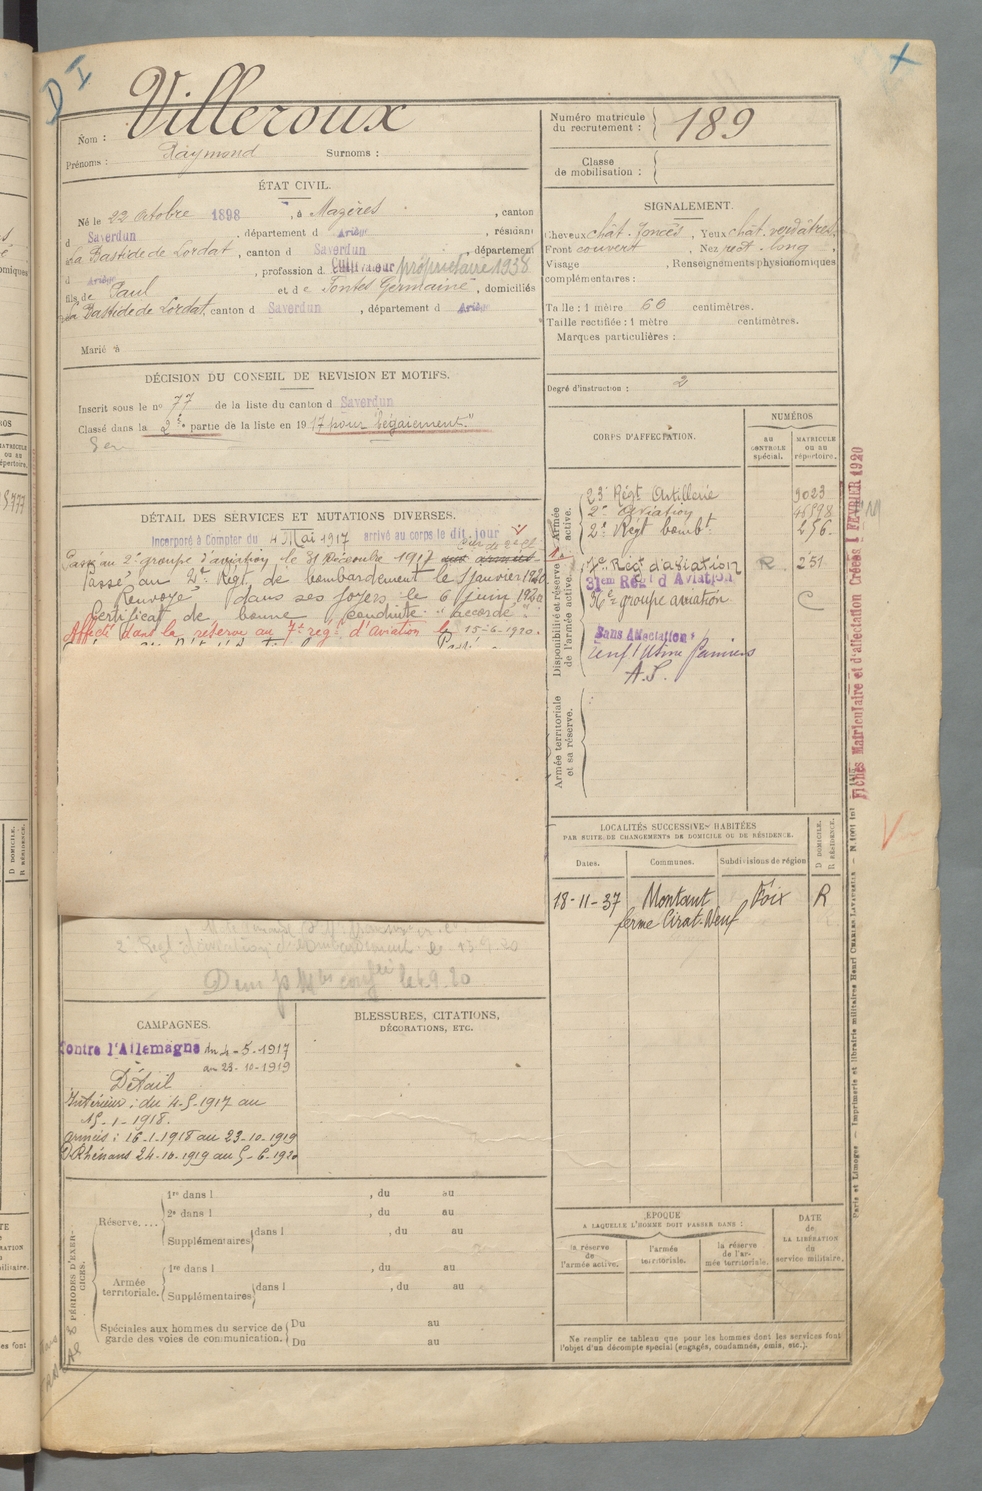 D I
+
Nom : Villeroux
Prénoms : Raymond Surnoms :
Numéro matricule du recrutement : 189
Classe de mobilisation :
ÉTAT CIVIL.
Né le 22 Octobre 1898, à Mazères, canton
d Saverdun, département d Ariège, résidant
La Bastide de Lordat, canton d Saverdun, département
d Ariège, profession d Cultivateur propriétaire 1938
fils de Paul et de Pontes Germaine, domiciliés
La Bastide de Lordat, canton d Saverdun, département d Ariège
Marié à
SIGNALEMENT.
Cheveux chât. foncés, Yeux chât. verdâtres,
Front couvert, Nez rect. long,
Visage , Renseignements physionomiques
complémentaires :
Taille : 1 mètre 66 centimètres.
Taille rectifiée : 1 mètre centimètres.
Marques particulières :
Degré d'instruction : 2
DÉCISION DU CONSEIL DE REVISION ET MOTIFS.
Inscrit sous le no 77 de la liste du canton d Saverdun
Classé dans la 2e partie de la liste en 1917 pour "bégaiement."
DÉTAIL DES SERVICES ET MUTATIONS DIVERSES.
Incorporé à Compter du 4 Mai 1917 arrivé au corps le dit jour
Passé au 2e groupe d'aviation le 31 Décembre 1917
Passé au 2e Régt de bombardement le 1 janvier 1920
Renvoyé dans ses foyers le 6 juin 1920
Certificat de bonne conduite "accordé".
Affecté dans la réserve au 7e régt d'aviation le 15-6-1920.
2e Régt d'aviation de bombardement le 13 9 20
CORPS D'AFFECTATION.
NUMÉROS
AU CONTROLE spécial.
MATRICULE OU AU répertoire.
Armée active.
23e Régt Artillerie 9023
2e aviation
2e Régt bombt. 256
Disponibilité et réserve de l'armée active.
7e Régt d'aviation R 251
31em Regt d'Aviation
36e groupe aviation C
Sans Affectation
A.S.
Armée territoriale et sa réserve.
Fiches Matriculaire et d'affectation Créées 1 FEVRIER 1920
LOCALITÉS SUCCESSIVES HABITÉES
PAR SUITE DE CHANGEMENTS DE DOMICILE OU DE RÉSIDENCE.
Dates. Communes. Subdivisions de région D DOMICILE. R RÉSIDENCE.
18-11-37 Montaut Foix R
ferme Cirat-Neuf
CAMPAGNES.
Contre l'Allemagne du 4-5-1917
au 23-10-1919
Détail
Intérieur : du 4-5-1917 au
15-1-1918.
armées : 16-1-1918 au 23-10-1919
Rhénans 24-10-1919 au 5-6-1920
BLESSURES, CITATIONS,
DÉCORATIONS, ETC.
PÉRIODES D'EXERCICES.
Réserve....
1re dans l , du au
2e dans l , du au
Supplémentaires dans l , du au
Armée territoriale.
1re dans l , du au
Supplémentaires dans l , du au
Spéciales aux hommes du service de garde des voies de communication.
Du au
Du au
ÉPOQUE
A LAQUELLE L'HOMME DOIT PASSER DANS :
la réserve de l'armée active.
l'armée territoriale.
la réserve de l'armée territoriale.
DATE de LA LIBÉRATION du service militaire.
Ne remplir ce tableau que pour les hommes dont les services font
l'objet d'un décompte spécial (engagés, condamnés, omis, etc.).
Paris et Limoges — Imprimerie et librairie militaires Henri CHARLES-LAVAUZELLE